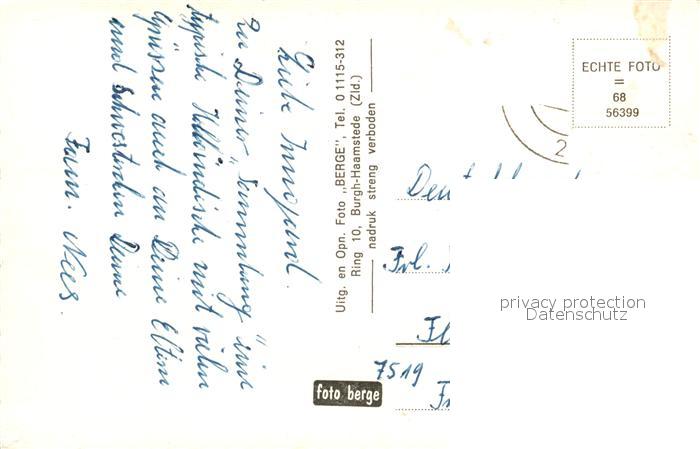 Liebe Irmgard.
Zu Deiner "Sammlung" eine
typische Holländische mit vielen
Grüssen auch an Deine Eltern
und Schwesterlein Deine
Fam. Nees.
Uitg. en Opn. Foto „BERGE", Tel. 0 1115-312
Ring 10, Burgh-Haamstede (Zld.)
nadruk streng verboden
foto berge
ECHTE FOTO
=
68
56399
2
Frl.
7519
privacy protection
Datenschutz